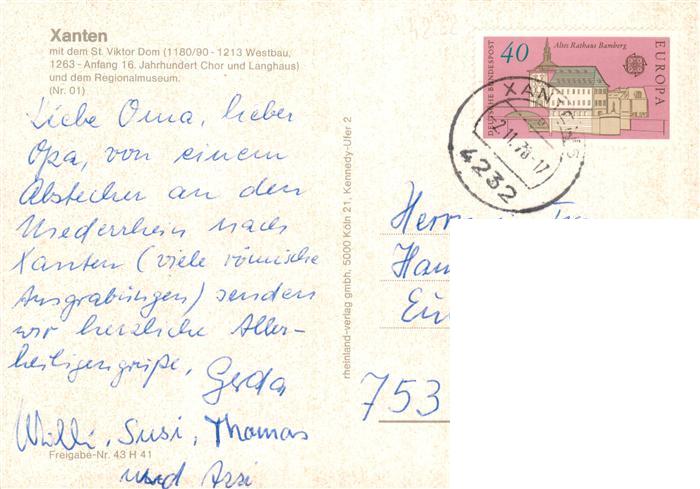 Xanten
mit dem St. Viktor Dom (1180/90 - 1213 Westbau,
1263 - Anfang 16. Jahrhundert Chor und Langhaus)
und dem Regionalmuseum.
(Nr. 01)
Liebe Oma, lieber
Opa, von einem
Abstecher an den
Niederrhein nach
Xanten (viele römische
Ausgrabungen) senden
wir herzliche Aller-
heiligengrüße,
Gerda
Willi, Susi, Thomas
und
Freigabe-Nr. 43 H 41
rheinland-verlag gmbh. 5000 Köln 21, Kennedy-Ufer 2
40
Altes Rathaus Bamberg
DEUTSCHE BUNDESPOST
EUROPA
XANTEN
-2.11.78-17
4232
4232
753